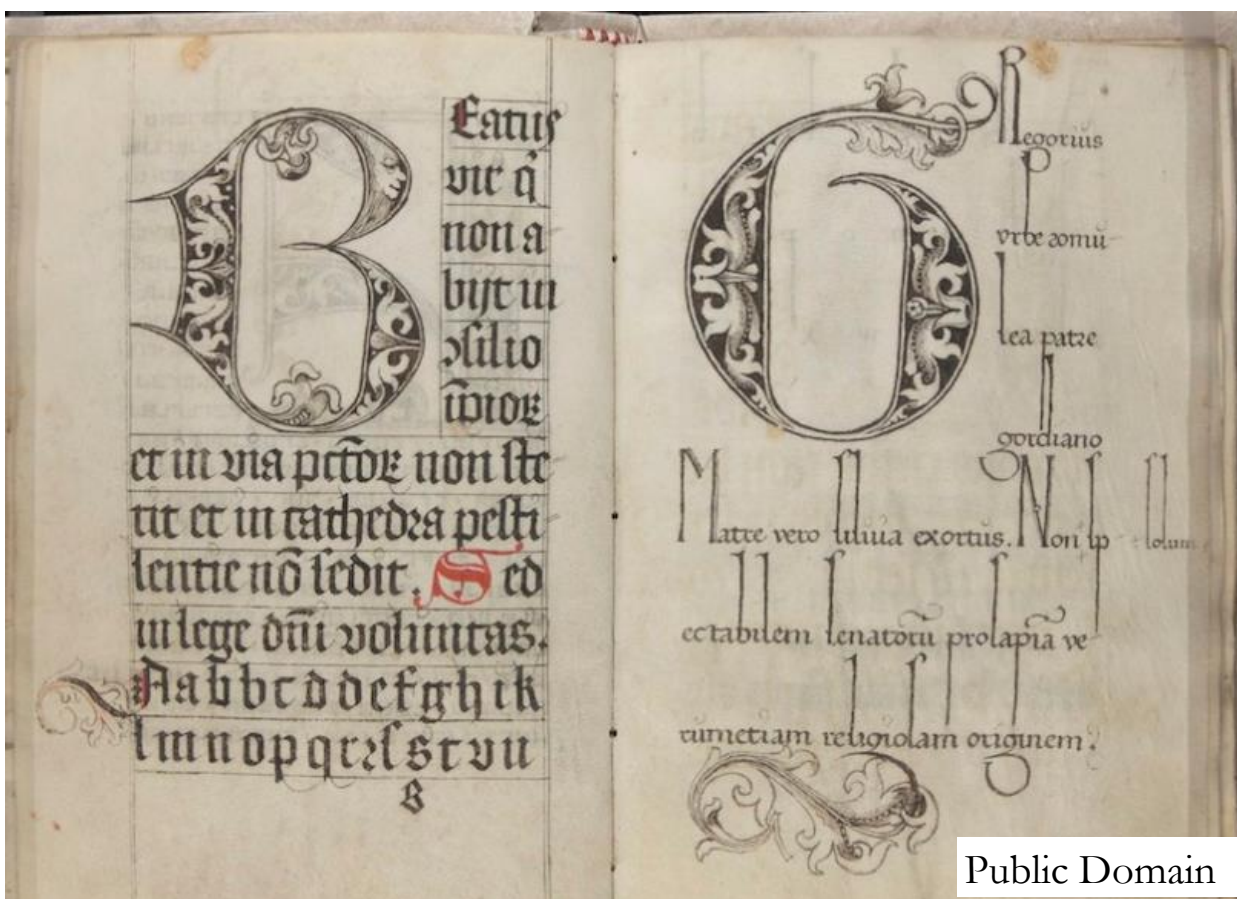 BEatus
vir q̃
non a-
bijt in
ↄsilio
im̃pioꝝ
et in via pctõꝝ non ste-
tit et in cathedra pesti-
lentie nõ sedit. Sed
in lege dñi voluntas.
Aabbcddefghik
lmnopqrꝛſstvu
s
GRegorius
vrbe romu-
lea patre
gordiano
Matre vero siluia exortus. Non sp solum
ectabilem senatorũ prosapia ve
rumetiam religiosam originem.
Public Domain